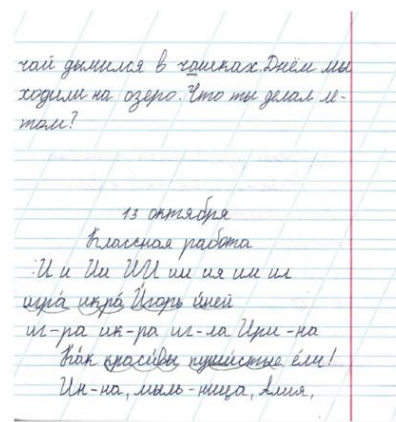 чай дымился в чашках. Днём мы
ходили на озеро. Что ты делал ле-
том?
13 октября
Классная работа
И и Ии ИИ ии ия им ил
игра́ икра́ И́горь и́ней
иг-ра ик-ра иг-ла Ири-на
Ка́к краси́вы пуши́стые е́ли!
Ин-на, мыль-ница, Алия,